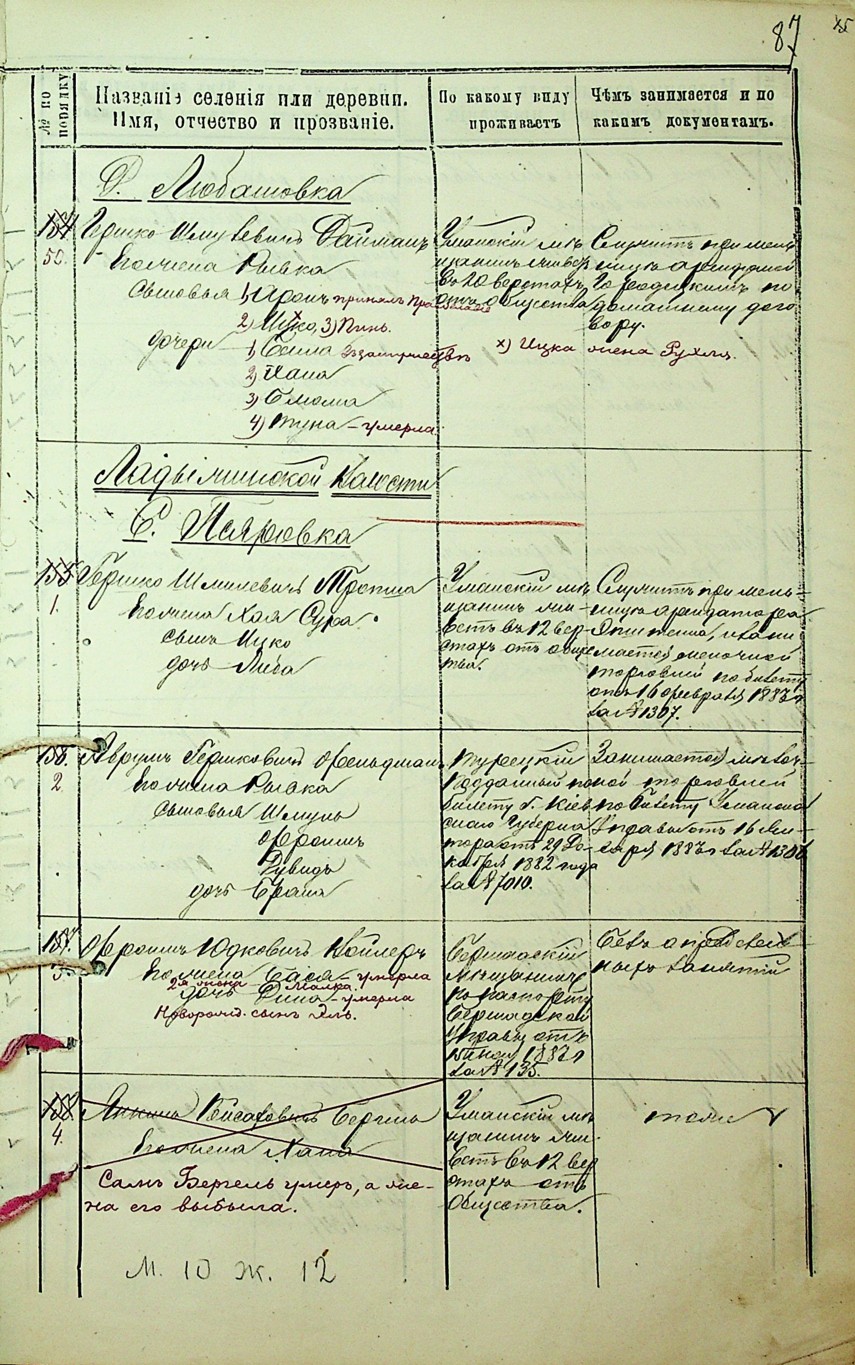 87
№ по порядку
Названіе селенія или деревни.
Имя, отчество и прозваніе.
По какому виду
проживаетъ
Чѣмъ занимается и по
какимъ документамъ.
Д. Любашовка
154
50.
Гершко Шмулевичъ
Его жена Рывка
сыновья 1) Аронъ принялъ
2) Ицко, 3) Пинь.
дочери 1) Бейла
2) Хана
3)
4) – умерла
Уманскій мѣ
щанинъ живетъ
въ 20 верстахъ
отъ общества
Служитъ при мель
ницѣ
Городецкимъ по
домашнему дого
вору.
х) Ицка жена Рухля.
Ладыжинской Волости
С.
155
1.
Гершко Шмилевичъ
Его жена Хая Сура
сынъ Ицко
дочь Либа
Уманскій мѣ
щанинъ жи-
ветъ въ 12 вер
стахъ отъ обще
тва.
Служитъ при мель-
ницѣ арендатора
мается мелочной
торговлей по билету
отъ 16 февраля 1883 г
за № 1307.
156.
2
Аврумъ Гершковичъ Фельдманъ
Его жена Рывка
сыновья Шмуль
Фроимъ
Дувидъ
дочь
Турецкій
подданный по
билету г. Кіев
скаго Губерна
тора отъ 29 Де
кабря 1882 года
за № 7010.
Занимается мѣлоч-
ной торговлей
по билету Уманской
Управы отъ 16
1883 г за № 1306
157.
3.
Фроимъ Юдковичъ
Его жена Бася – умерла
2я жена Малка.
дочь Дина – умерла
Новорожд. сынъ Эль.
Бершадскій
мѣщанинъ
по паспорту
Бершадской
Управы отъ
1883 г
за № 135.
Безъ опредѣлен
ныхъ занятій
158.
4.
Бергель
Его жена Хана
Самъ Бергель умеръ, а же-
на его выбыла.
Уманскій мѣ
щанинъ жи-
ветъ въ 12 вер
стахъ отъ
Общества.
тоже
М. 10 Ж. 12